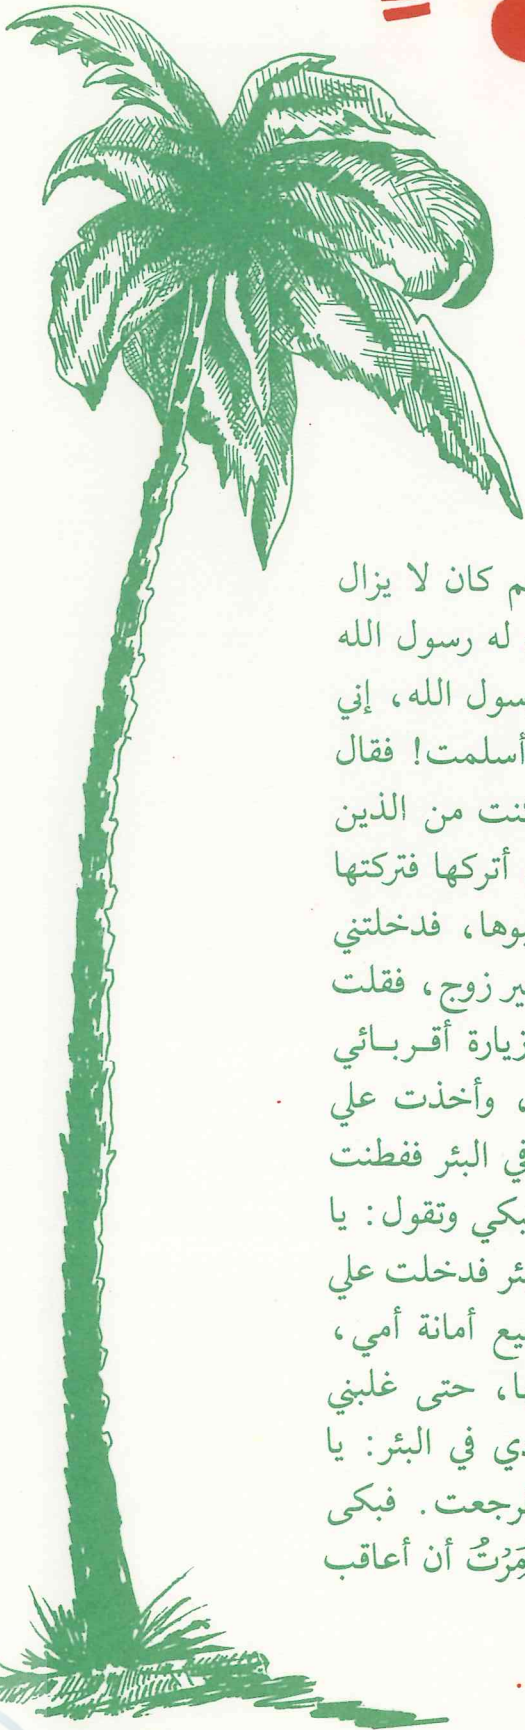 م كان لا يزال
له رسول الله
سول الله، إني
أسلمت! فقال
نت من الذين
أتركها فتركتها
بوها، فدخلتني
ير زوج، فقلت
زيارة أقربائي
، وأخذت علي
في البئر ففطنت
بكي وتقول: يا
ئر فدخلت علي
يع أمانة أمي،
ا، حتى غلبني
دي في البئر: يا
رجعت. فبكى
مَرْتُ أن أعاقب